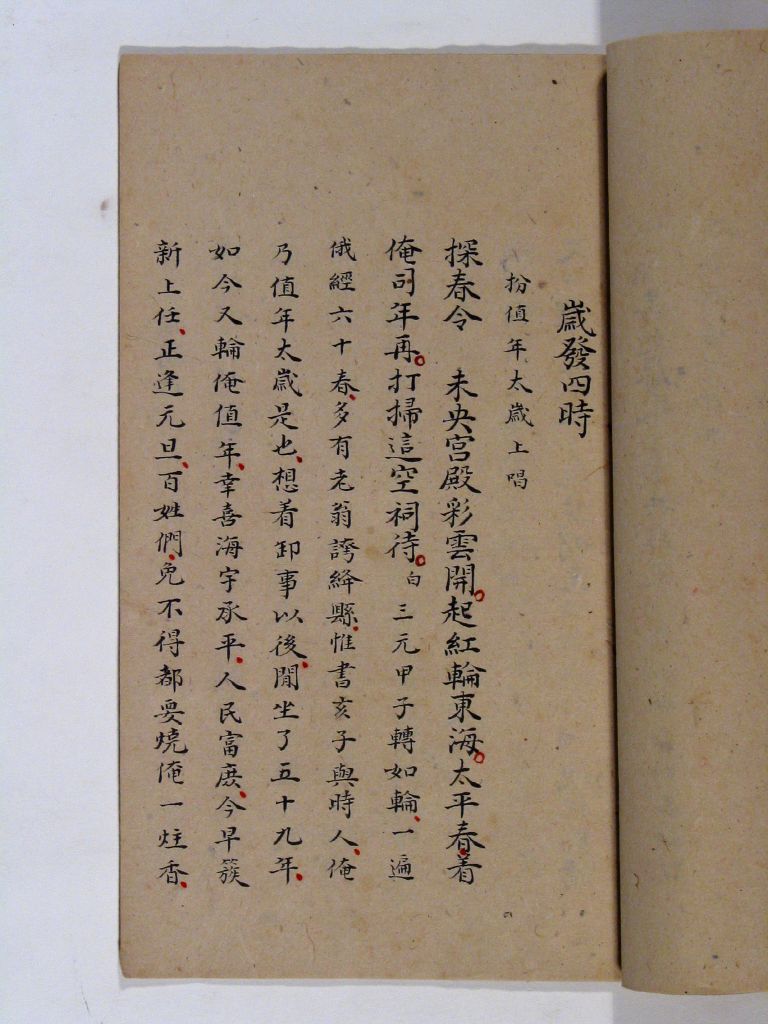 歲發四時
扮值年太歲上唱
探春令　未央宮殿彩雲開。起紅輪東海。太平春、着
俺司年再。打掃這空祠待。白　三元甲子轉如輪、一遍
俄經六十春、多有老翁誇絳縣、惟書亥子與時人、俺
乃值年太歲是也、想着卸事以後、閒坐了五十九年、
如今又輪俺值年、幸喜海宇承平、人民富庶、今早簇
新上任、正逢元旦、百姓們、免不得都要燒俺一炷香、